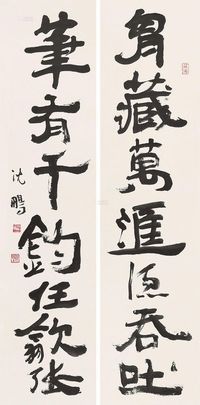 胷藏萬滙凭吞吐
筆有千鈞任歙张
沈鵬